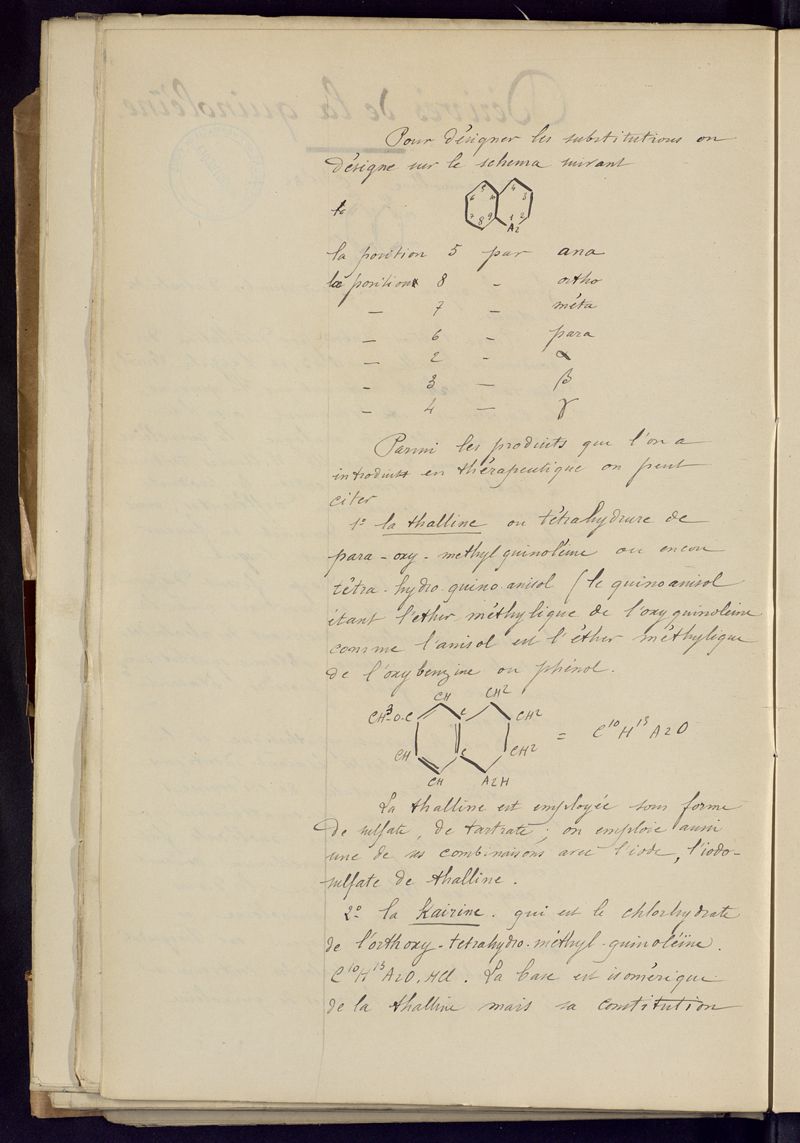 Pour désigner les substitutions on
désigne sur le schema suivant
5 4
6 10 3
7 9 1 2
8 Az
la position 5 par ana
la position 8 - ortho
- 7 - méta
- 6 - para
- 2 - α
- 3 - β
- 4 - γ
Parmi les produits que l'on a
introduits en thérapeutique on peut
citer
1º la thalline ou tétrahydrure de
para-oxy-methylquinoléine ou encore
tétra-hydro quino anisol (le quinoanisol
étant l'ether méthylique de l'oxyquinoleine
comme l'anisol est l'éther méthylique
de l'oxybenzine ou phénol.
CH CH2
CH3-O-C C CH2
= C10H13AzO
CH C CH2
CH AzH
La thalline est employée sous forme
de sulfate, de tartrate; on emploie aussi
une de ses combinaisons avec l'iode, l'iodo-
sulfate de thalline.
2º la Kairine. qui est le chlorhydrate
de l'orthoxy-tetrahydro-méthyl-quinoléïne.
C10H13AzO,HCl. La base est isomérique
de la thalline mais sa constitution